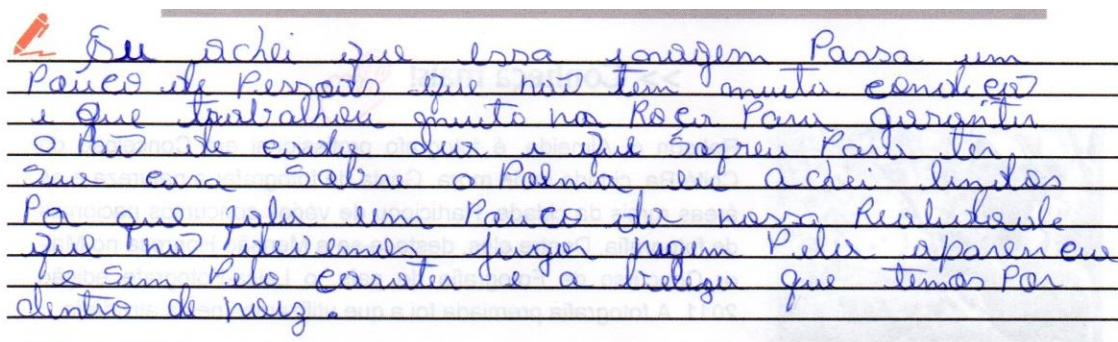 Eu achei que essa imagem Passa um
Pouco de Pessoas que não tem muita condição
e que trabalhou muito na Roça Para garantir
o Pão de cada dia e que sofreu Para ter
sua casa Sobre o Poema eu achei lindos
Por que fala um Pouco da nossa Realidade
que não devemos julgar Pela aparencia
e Sim Pelo carater e a beleza que temos Por
dentro de noiz.